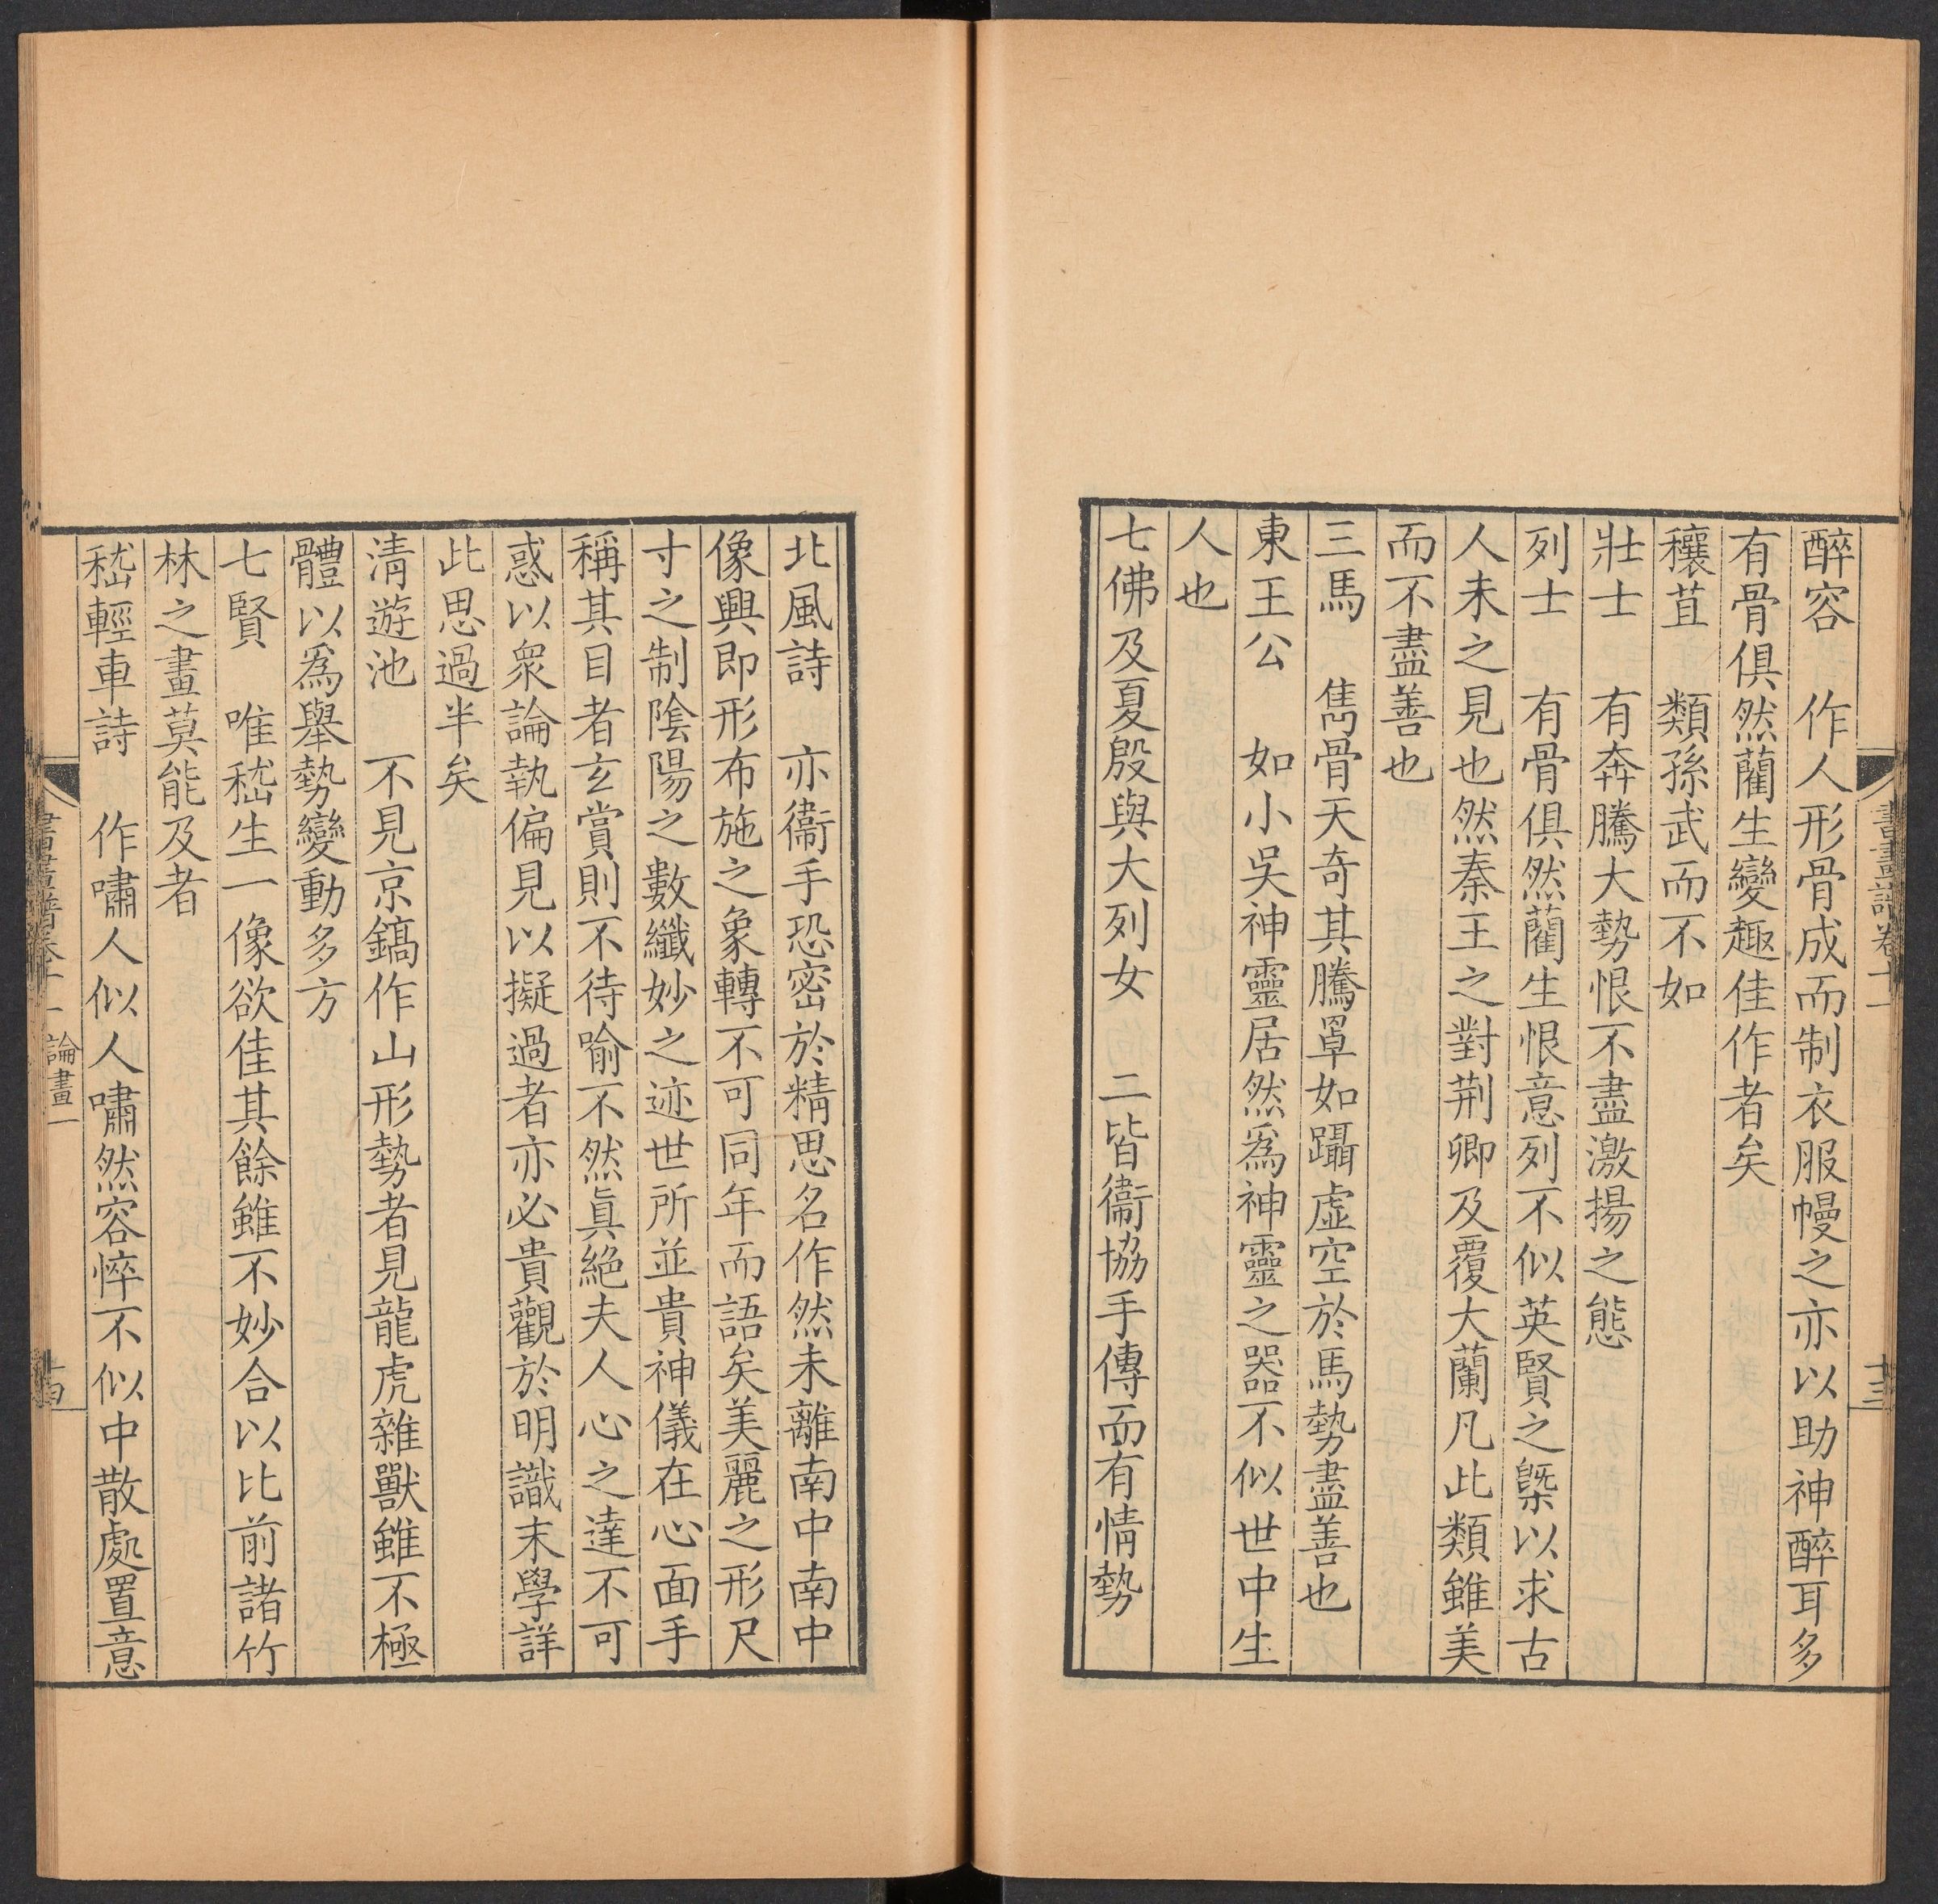 書畫譜卷十一
十三
醉容 作人形骨成而制衣服幔之亦以助神醉耳多
有骨俱然藺生變趣佳作者矣
穰苴 類孫武而不如
壯士 有奔騰大勢恨不盡激揚之態
列士 有骨俱然藺生恨意列不似英賢之槩以求古
人未之見也然秦王之對荆卿及覆大蘭凡此類雖美
而不盡善也
三馬 雋骨天奇其騰罩如躡虛空於馬勢盡善也
東王公 如小吳神靈居然爲神靈之器不似世中生
人也
七佛及夏殷與大列女 二皆衞協手傳而有情勢
北風詩 亦衞手恐密於精思名作然未離南中南中
像興即形布施之象轉不可同年而語矣美麗之形尺
寸之制陰陽之數纖妙之迹世所並貴神儀在心面手
稱其目者玄賞則不待喻不然眞絕夫人心之達不可
惑以衆論執偏見以擬過者亦必貴觀於明識末學詳
此思過半矣
清遊池 不見京鎬作山形勢者見龍虎雜獸雖不極
體以爲舉勢變動多方
七賢 唯嵇生一像欲佳其餘雖不妙合以比前諸竹
林之畫莫能及者
嵇輕車詩 作嘯人似人嘯然容悴不似中散處置意
書畫譜卷十一 論畫一
十四